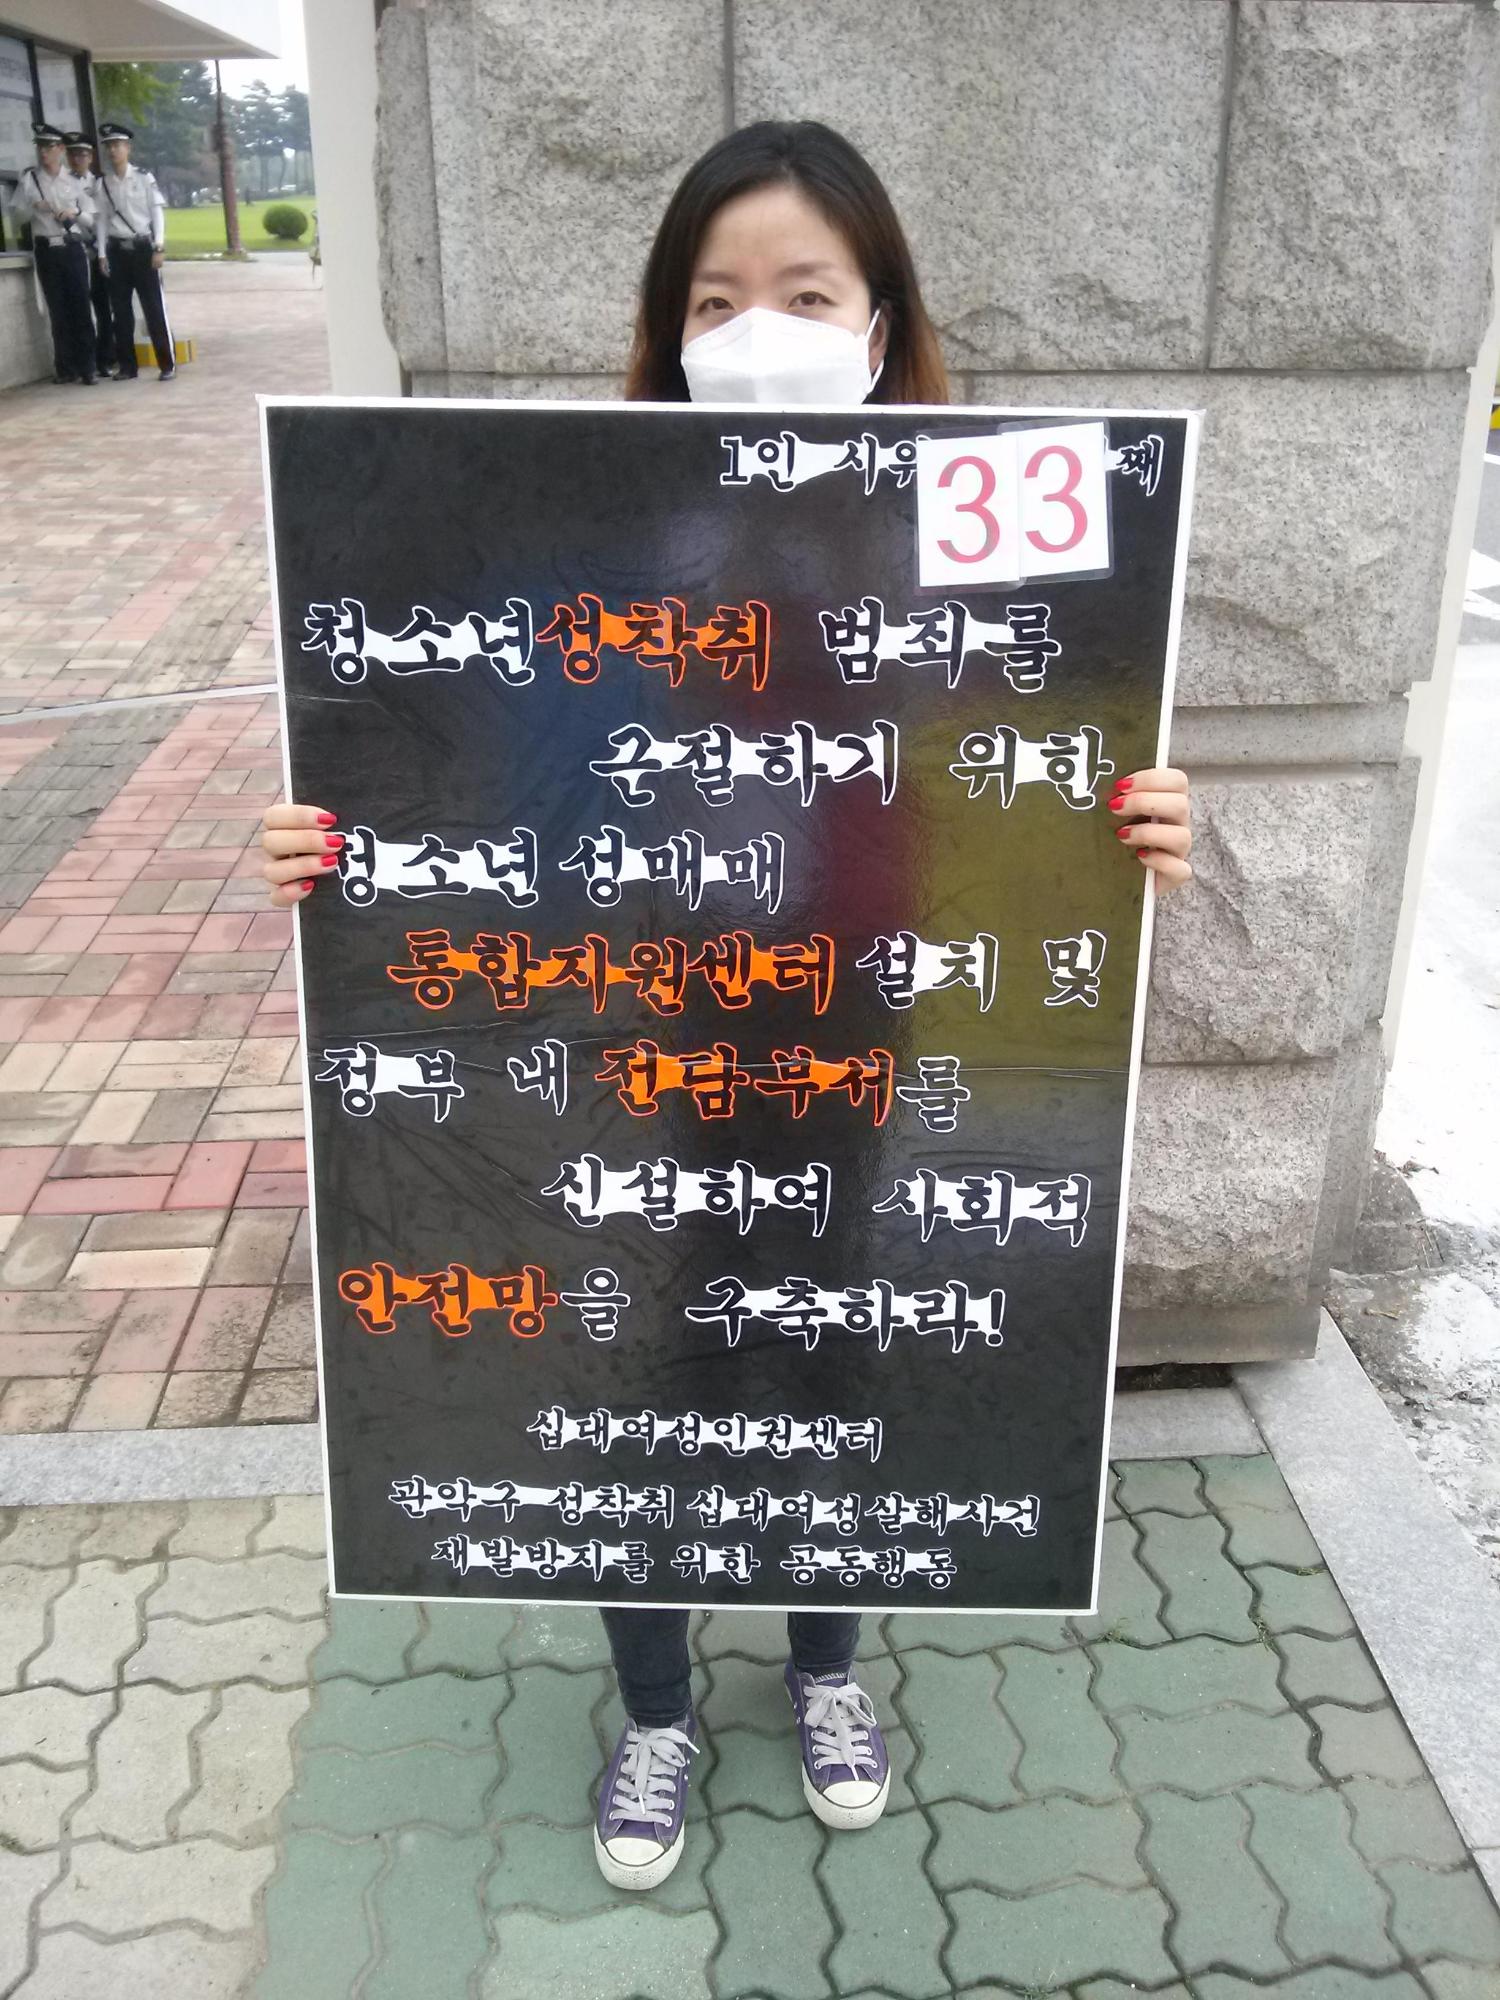 1인 시위 33 째
청소년성착취 범죄를
근절하기 위한
청소년 성매매
통합지원센터 설치 및
정부 내 전담부서를
신설하여 사회적
안전망을 구축하라!
십대여성인권센터
관악구 성착취 십대여성살해사건
재발방지를 위한 공동행동